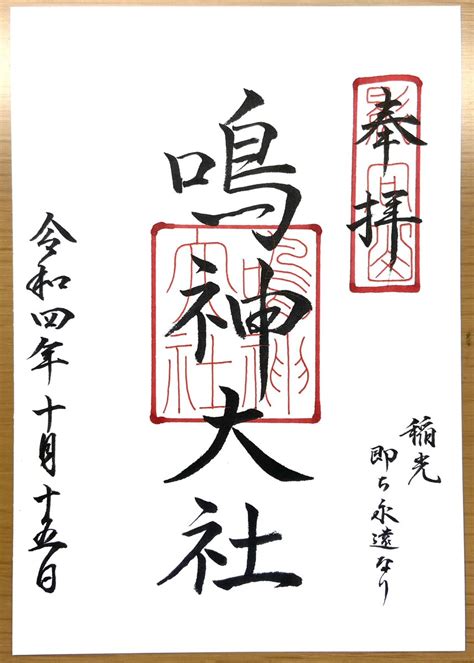 奉拝
稲光
即ち永遠なり
鳴神大社
令和四年十月十五日